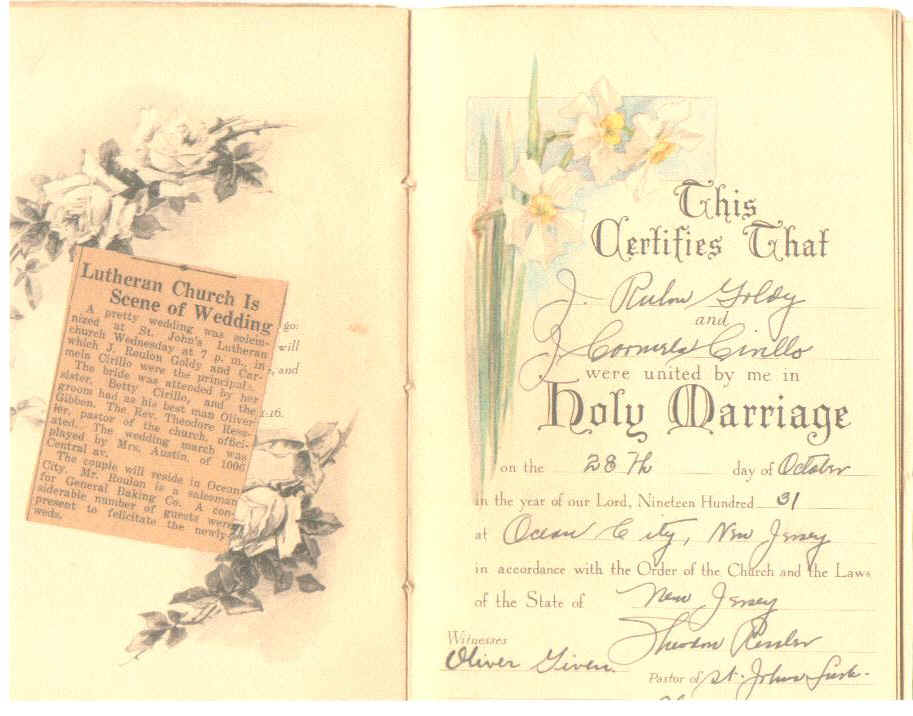 Lutheran Church Is
Scene of Wedding
A pretty wedding was solem-
nized at St. John's Lutheran
church Wednesday at 7 p. m. in
which J. Roulon Goldy and Car-
mela Cirillo were the principals.
The bride was attended by her
sister, Betty Cirillo, and the
groom had as his best man Oliver
Gibben. The Rev. Theodore Ress-
ler, pastor of the church, offici-
ated. The wedding march was
played by Mrs. Austin, of 1006
Central av.
The couple will reside in Ocean
City. Mr. Roulan is a salesman
for General Baking Co. A con-
siderable number of guests were
present to felicitate the newly-
weds.
go:
will
, and
1:16.
This
Certifies That
J. Rulon Goldy
and
Cirillo
were united by me in
Holy Marriage
on the 28th day of October
in the year of our Lord, Nineteen Hundred 31
at Ocean City, New Jersey
in accordance with the Order of the Church and the Laws
of the State of New Jersey
Theodore Ressler
Witnesses
Oliver Given
Pastor of St. Johns